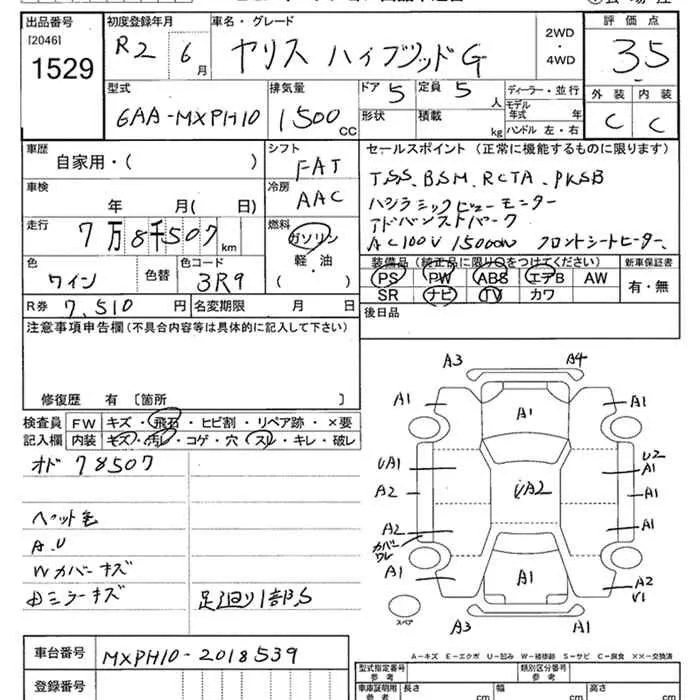 出品番号 初度登録年月 車名・グレード 2WD・4WD 評価点
[2046]
1529 R2 6月 ヤリス ハイブリッドG 3.5
型式 排気量 ドア 5 定員 5人 ディーラー・並行 外装 内装
6AA-MXPH10 1500cc 形状 積載 kg モデル年式 年 C C
ハンドル 左・右
車歴 自家用・( ) シフト FAT セールスポイント (正常に機能するものに限ります)
車検 年 月( 日) 冷房 AAC TSS. BSM. RCTA. PKSB
パノラミックビューモニター
走行 7万8千507km 燃料 ガソリン アドバンストパーク
軽・油 AC100V 1500W フロントシートヒーター.
( )
色 ワイン 色替 色コード 3R9 装備品 (純正品に限り○をつけてください) 新車保証書
PS PW ABS エアB AW 有・無
R券 7,510円 名変期限 月 日 SR ナビ TV カワ
注意事項申告欄(不具合内容等は具体的に記入して下さい) 後日品
修復歴 有 〔箇所 〕
検査員 FW キズ・飛石・ヒビ割・リペア跡・×要
記入欄 内装 キズ・汚レ・コゲ・穴・スレ・キレ・破レ
オド 78507
ペット毛
A.U
Wカバーキズ
内ミラーキズ 足廻り1部S
A3 A4
A1 A1 A1
UA1 U2 A1
A2 UA2 A1
A2 A1
カバーワレ
A1 A1 A2 U1
A3 A1
スペア
A-キズ E-エクボ U-凹み W-補修跡 S-サビ C-腐食 XX-交換済
車台番号 MXPH10-2018539
型式指定番号 参考 類別区分番号 参考
登録番号 車庫証明用 参考 長さ cm 幅 cm 高さ cm